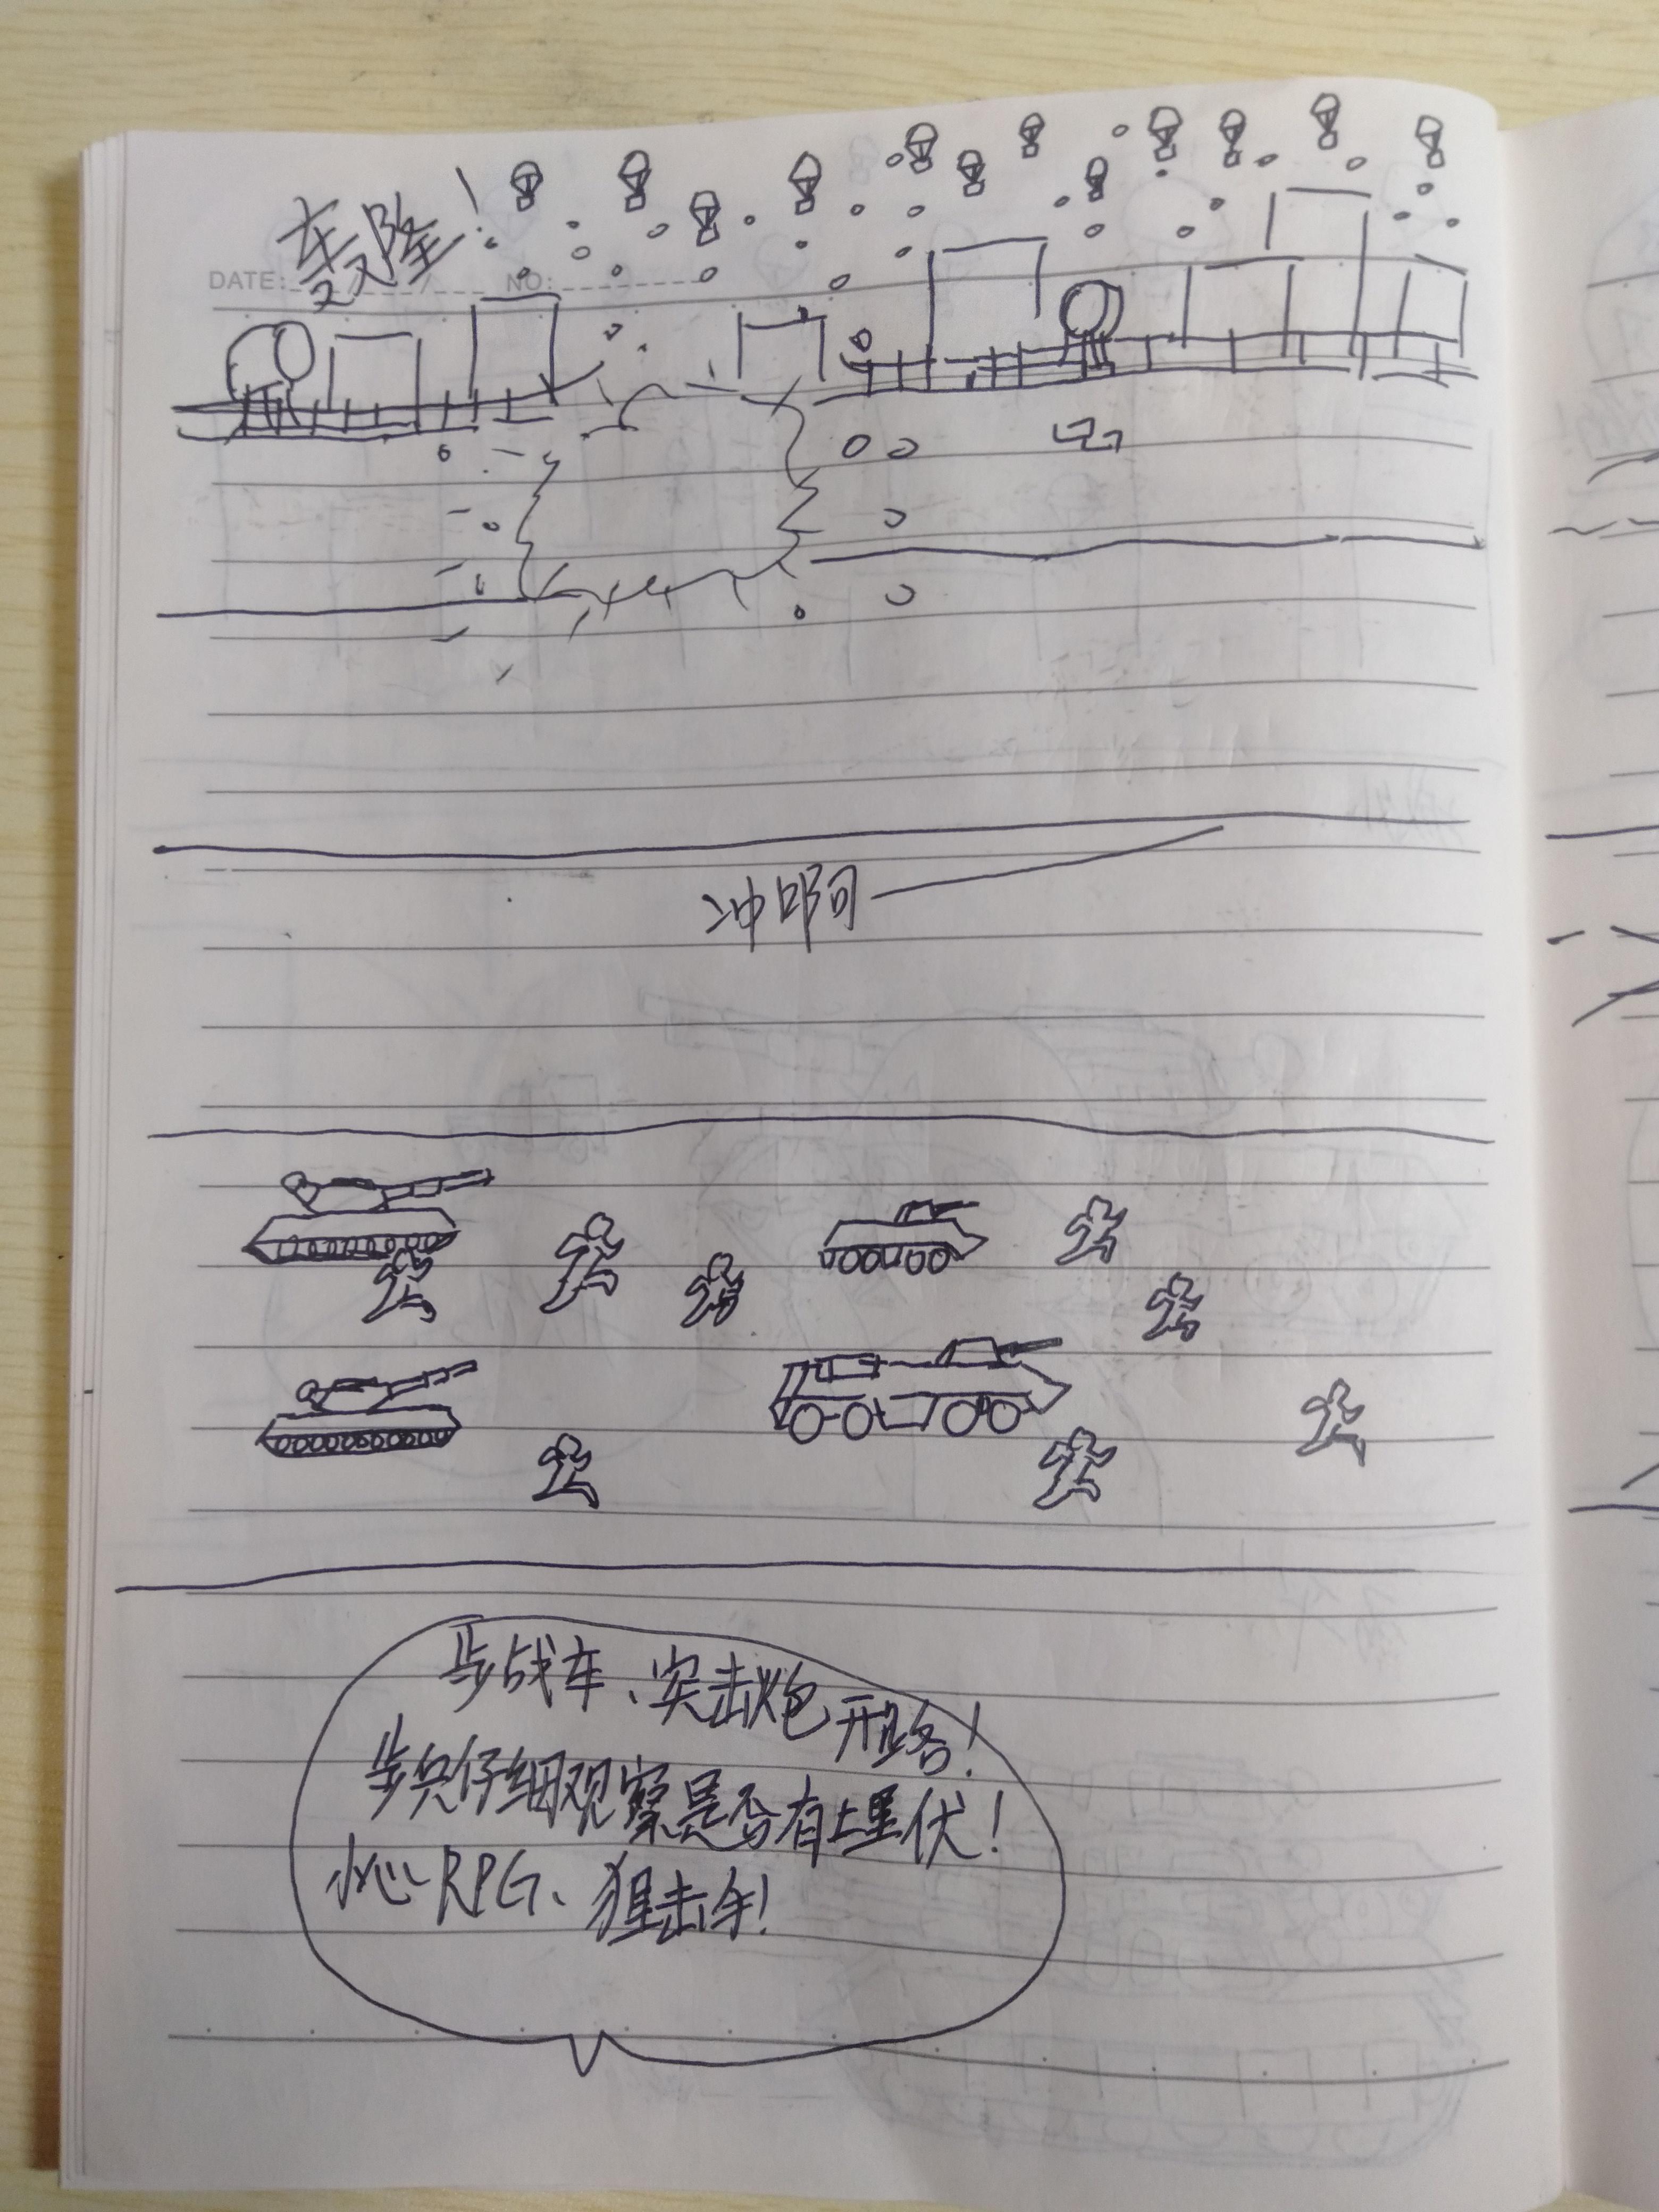 轰隆！
DATE: / / NO:
冲啊——
步战车、突击炮开路！
步兵仔细观察是否有埋伏！
小心RPG、狙击手！